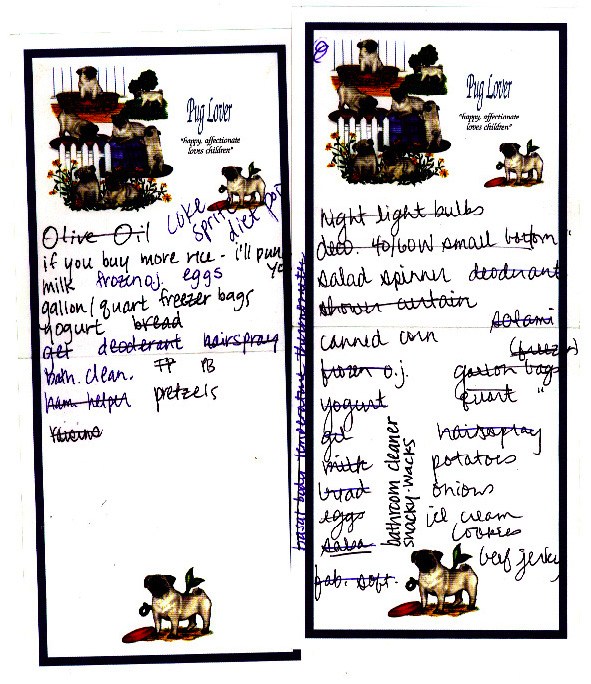 Pug Lover
"happy, affectionate
loves children"
coke
sprite
diet pop
Olive Oil
if you buy more rice - i'll pun
yo
milk frozen o.j. eggs
gallon/quart freezer bags
yogurt bread
gel deodorant hairspray
bath. clean. TP PB
ham. helper pretzels
raisins
Pug Lover
"happy, affectionate
loves children"
night light bulbs
deco. 40/60W small bottom "
salad spinner deodorant
shower curtain
salami
canned corn
(freezer)
frozen o.j. gallon bags
yogurt quart "
gel hairspray
milk potatoes
bread onions
eggs ice cream
cookies
salsa
beef jerky
fab. soft.
bathroom cleaner
snacky-wacks
basal body temperature thermometer